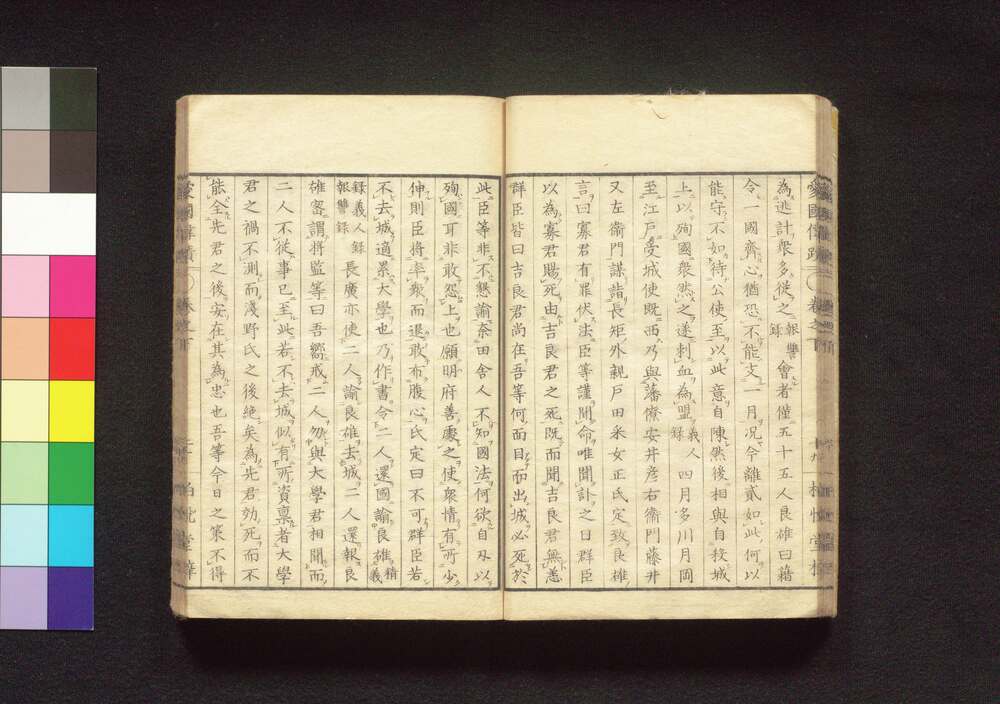 為逃計衆多從之報讐錄會者僅五十五人良雄曰籍
令一國齊心猶恐不能支一月况今離貳如此何以
能守不如待公使至以此意自陳然後相與自殺城
上以殉國衆然之遂刺血為盟義人錄四月多川月岡
至江戶受城使既西乃與藩僚安井彦右衞門藤井
又左衞門謀詣長矩外親戶田采女正氏定致良雄
言曰寡君有罪伏法臣等謹聞命唯聞訃之日群臣
以為寡君賜死由吉良君之死既而聞吉良君無恙
群臣皆曰吉良君尚在吾等何面目而出城必死於
此臣等非不懇諭奈田舍人不知國法何欲自刄以
殉國耳非敢怨上也願明府善處之使衆情有所少
伸則臣將率衆而退敢布腹心氏定曰不可群臣若
不去城適累大學也乃作書令二人還國諭良雄精義
錄義人錄報讐錄長廣亦使二人諭良雄去城二人還報良
雄密謂將監等曰吾嚮戒二人勿與大學君相聞而
二人不從事已至此若不去城似有所資稟者大學
君之禍不測而淺野氏之後絶矣為先君効死而不
能全先君之後安在其為忠也吾等今日之策不得
卷之下